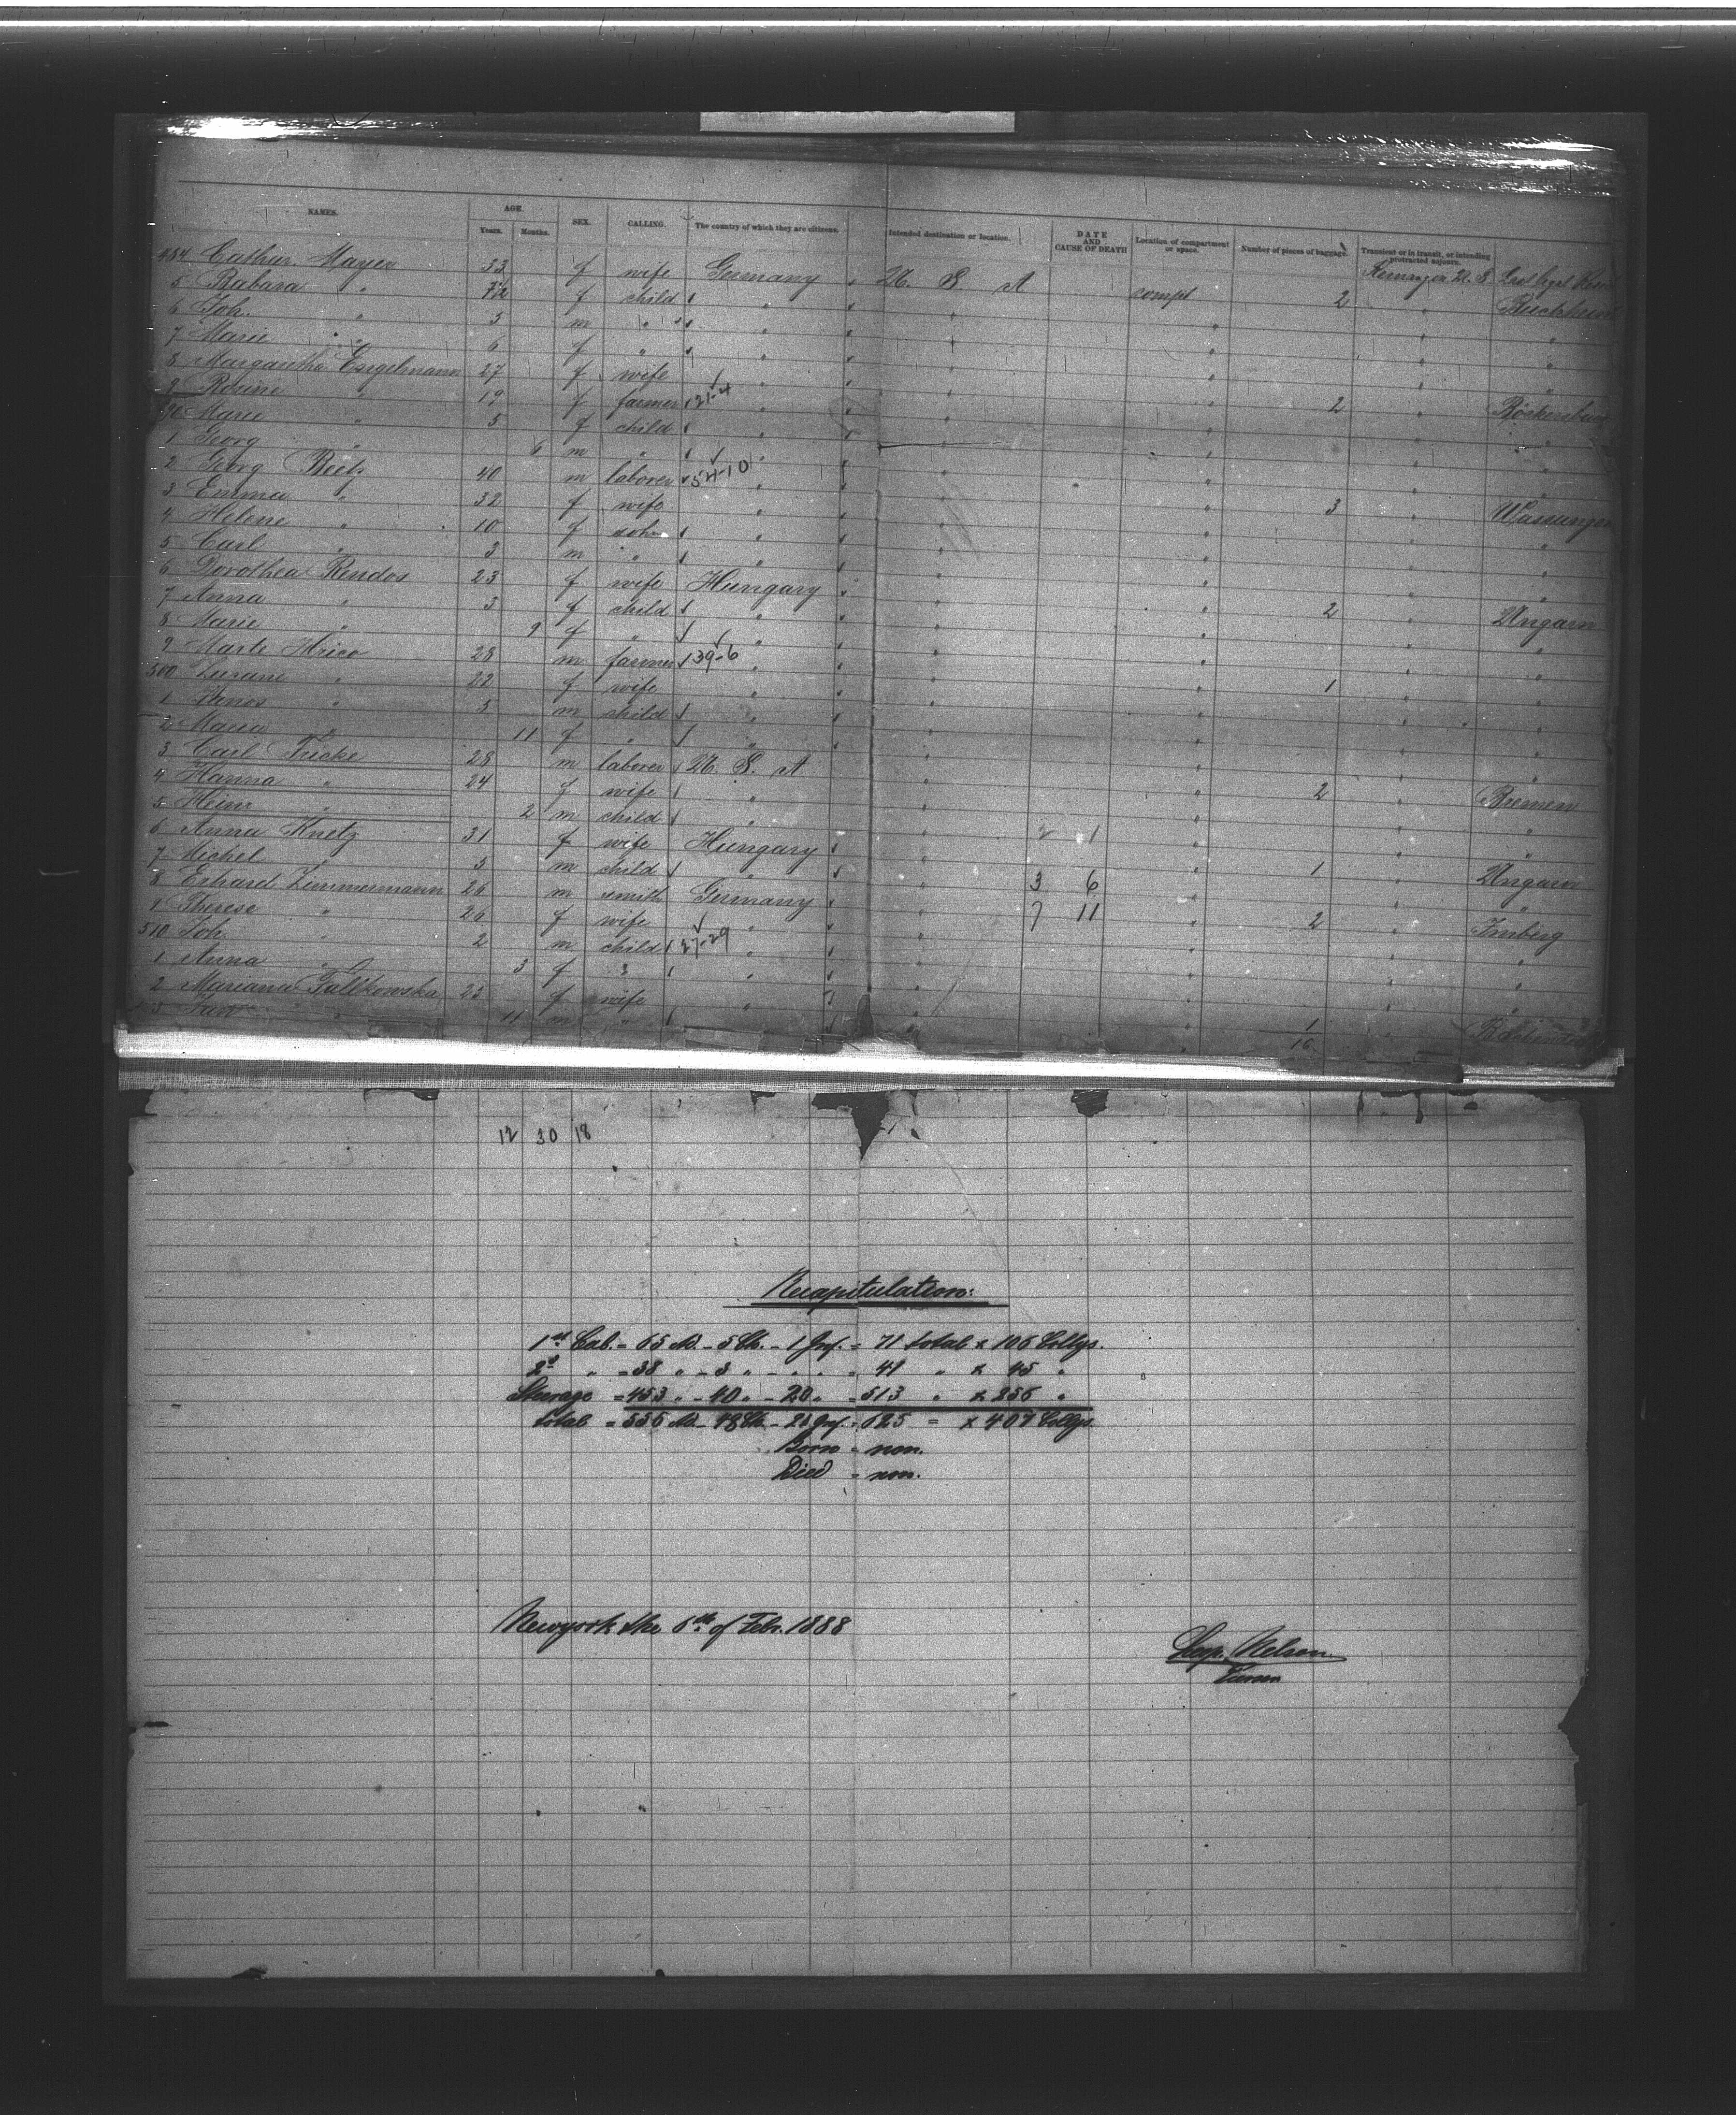 NAMES. AGE. Years. Months. SEX. CALLING. The country of which they are citizens. Intended destination or location. DATE AND CAUSE OF DEATH Location of compartment or space. Number of pieces of baggage. Transient or in transit, or intending protracted sojourn.
484 Cathar. Mayer 33 f wife Germany U. S. A compt 2
5 Babara " f child "
6 Joh. " 5 m " "
7 Marie " 6 f " "
8 Margaretha Engelmann 27 f wife " 2
9 Rosine " 19 f farmer 21-4 "
490 Marie " 5 f child "
1 Georg " 6 m " "
2 Georg Beetz 40 m laborer 54-10 " 3 Wasungen
3 Emma " 32 f wife " "
4 Helene " 10 f "
5 Carl " 3 m " "
6 Dorothea Rendos 23 f wife Hungary 2 Ungarn
7 Anna " 3 f child " "
8 Marie " 9 f " " "
9 Hrico 28 m farmer 39-6 " 1 "
500 " 22 f wife " "
1 Janos " 3 m child " "
2 Maria " 11 f " " "
3 Carl Fricke 28 m laborer U. S. A 2 Bremen
4 Hanna " 24 f wife " "
5 Heinr " 2 m child " "
6 Anna Knetz 31 f wife Hungary 2 1 1 Ungarn
7 Michel " 3 m child " 3 6 "
8 Erhard Zimmermann 26 m smith Germany 7 11 2
9 Therese " 26 f wife " "
510 Joh. " 2 m child 27-29 " "
1 Anna " 3 f " " "
2 Mariana Falkowska 23 f wife " 1
3 " 11 m " "
16
12 30 18
Recapitulation:
1st Cab. = 65 Ad. - 5 Ch. - 1 Inf. = 71 total x 106 Collys.
2d " = 38 " - 3 " - " " = 41 " x 45 "
Steerage = 453 " - 40 " - 20 " = 513 " x 256 "
total = 556 Ad. - 48 Ch. - 21 Inf. = 625 = x 407 Collys.
Born = non.
Died = non.
Newyork the 6th of Febr. 1888